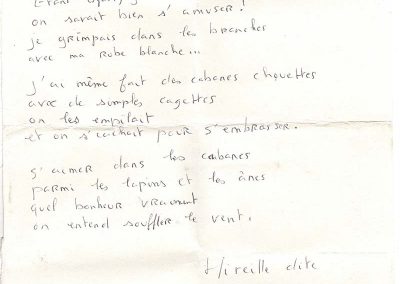 on savait bien s'amuser !
je grimpais dans les branches
avec ma robe blanche...
j'ai même fait des cabanes chouettes
avec de simples cagettes
on les empilait
et on s'cachait pour s'embrasser.
s'aimer dans les cabanes
parmi les lapins et les ânes
quel bonheur vraiment
on entend souffler le vent.
Mireille dite